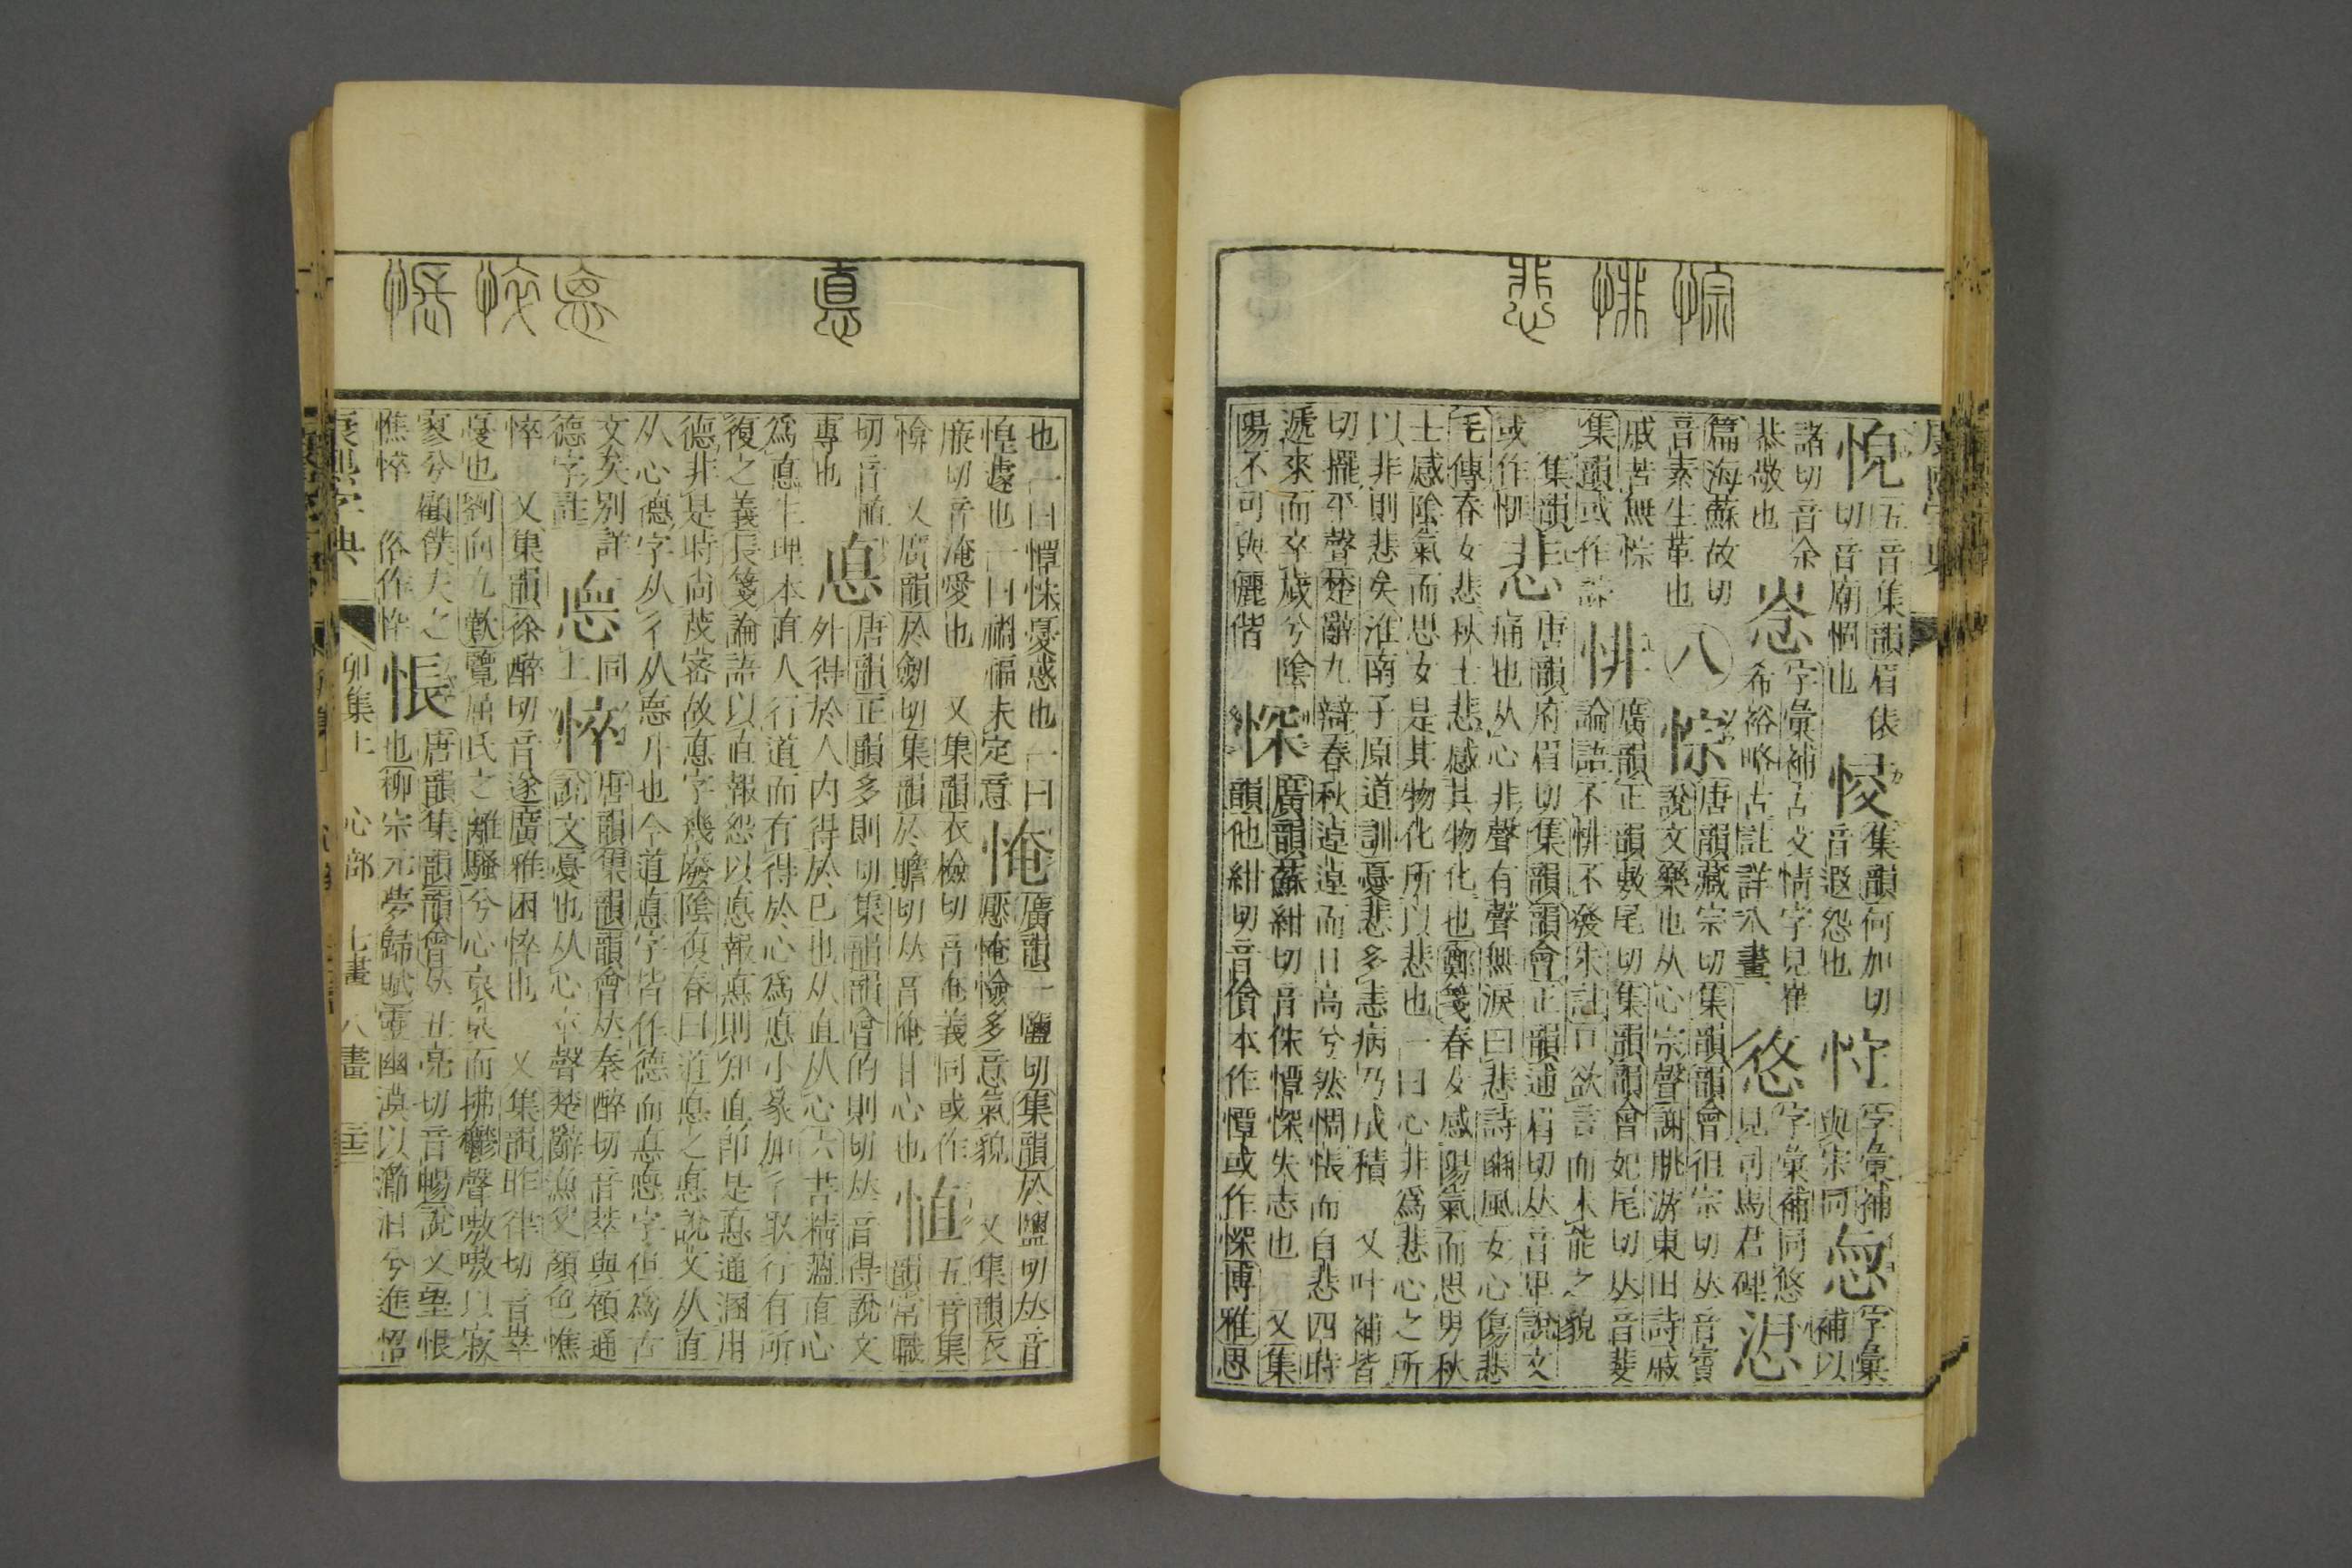 悗
五音集韻眉俵
切音廟惘也
集韻何加切
音遐怨也
字彙補
與宋同
字彙
補以
諸切音余
恭敬也
字彙補古文情字見崔
希裕略古註詳八畫
字彙補同悠
見司馬君碑
篇海蘇故切
音素生革也
八
悰
唐韻藏宗切集韻韻會徂宗切𠀤音賨
說文樂也从心宗聲謝朓游東田詩戚
戚苦無悰
集韻或作誴
悱
廣韻正韻敷尾切集韻韻會妃尾切𠀤音斐
論語不悱不發朱註口欲言而未能之貌
集韻
或作
悲
唐韻府眉切集韻韻會正韻逋眉切𠀤音卑說文
痛也从心非聲有聲無淚曰悲詩豳風女心傷悲
毛傳春女悲秋士悲感其物化也鄭箋春女感陽氣而思男秋
士感陰氣而思女是其物化所以悲也一曰心非爲悲心之所
以非則悲矣淮南子原道訓憂悲多恚病乃成積 又叶補皆
切擺平聲楚辭九辯春秋逴逴而日高兮然惆悵而自悲四時
遞來而卒歲兮陰
陽不可與儷偕
㥒
廣韻蘇紺切音俕憛㥒失志也 又集
韻他紺切音僋本作憛或作㥒博雅思
也一曰憛悇憂惑也一曰
惶遽也一曰禍福未定意
㤿
廣韻一鹽切集韻於鹽切𠀤音
懕㤿憸多意氣貌 又集韻衣
廉切音淹愛也 又集韻衣檢切音奄義同或作
㛪 又廣韻於劒切集韻於贍切𠀤音俺甘心也
五音集
韻常職
切音
專也
悳
唐韻正韻多則切集韻韻會的則切𠀤音得說文
外得於人内得於已也从直从心六書精薀直心
爲悳生理本直人行道而有得於心爲悳小篆加彳取行有所
復之義長箋論語以直報怨以悳報悳則知直卽是悳通溷用
德非是時尚茂密故悳字幾廢陰復春曰道悳之悳說文从直
从心德字从彳从悳升也今道悳字皆作德而悳字但爲古
文矣別詳
德字註
同
上
悴
唐韻集韻韻會𠀤秦醉切音萃與顇通
說文憂也从心卒聲楚辭漁父顏色憔
悴 又集韻徐醉切音遂廣雅困悴也 又集韻昨律切音崒
憂也劉向九歎覽屈氏之離騷兮心哀哀而怫鬱聲嗷嗷以寂
寥兮顧僕夫之
憔悴 俗作忰
悵
唐韻集韻韻會𠀤丑亮切音暢說文望恨
也柳宗元夢歸賦靈幽漠以瀄汨兮進怊
康熙字典 卯集上 心部 七畫 八畫